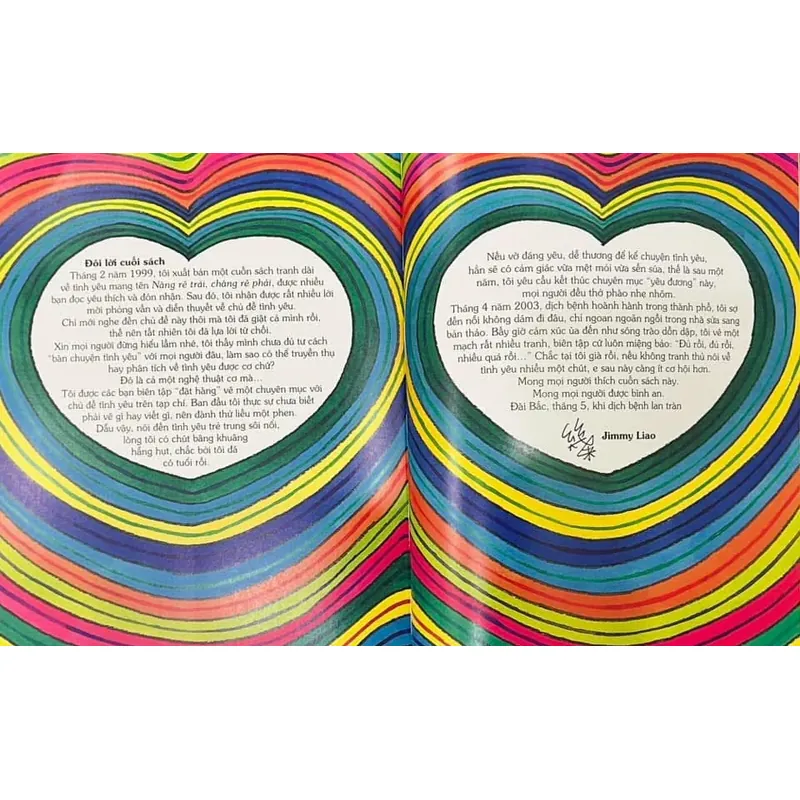 Đôi lời cuối sách
Tháng 2 năm 1999, tôi xuất bản một cuốn sách tranh dài
về tình yêu mang tên Nàng rẽ trái, chàng rẽ phải, được nhiều
bạn đọc yêu thích và đón nhận. Sau đó, tôi nhận được rất nhiều lời
mời phỏng vấn và diễn thuyết về chủ đề tình yêu.
Chỉ mới nghe đến chủ đề này thôi mà tôi đã giật cả mình rồi,
thế nên tất nhiên tôi đã lựa lời từ chối.
Xin mọi người đừng hiểu lầm nhé, tôi thấy mình chưa đủ tư cách
“bàn chuyện tình yêu” với mọi người đâu, làm sao có thể truyền thụ
hay phân tích về tình yêu được cơ chứ?
Đó là cả một nghệ thuật cơ mà...
Tôi được các bạn biên tập “đặt hàng” vẽ một chuyên mục với
chủ đề tình yêu trên tạp chí. Ban đầu tôi thực sự chưa biết
phải vẽ gì hay viết gì, nên đành thử liều một phen.
Dẫu vậy, nói đến tình yêu trẻ trung sôi nổi,
lòng tôi có chút bâng khuâng
hẫng hụt, chắc bởi tôi đã
có tuổi rồi.
Nếu vờ đáng yêu, dễ thương để kể chuyện tình yêu,
hẳn sẽ có cảm giác vừa mệt mỏi vừa sến súa, thế là sau một
năm, tôi yêu cầu kết thúc chuyên mục “yêu đương” này,
mọi người đều thở phào nhẹ nhõm.
Tháng 4 năm 2003, dịch bệnh hoành hành trong thành phố, tôi sợ
đến nỗi không dám đi đâu, chỉ ngoan ngoãn ngồi trong nhà sửa sang
bản thảo. Bấy giờ cảm xúc ùa đến như sóng trào dồn dập, tôi vẽ một
mạch rất nhiều tranh, biên tập cứ luôn miệng bảo: “Đủ rồi, đủ rồi,
nhiều quá rồi...” Chắc tại tôi già rồi, nếu không tranh thủ nói về
tình yêu nhiều một chút, e sau này càng ít cơ hội hơn.
Mong mọi người thích cuốn sách này.
Mong mọi người được bình an.
Đài Bắc, tháng 5, khi dịch bệnh lan tràn
Jimmy Liao